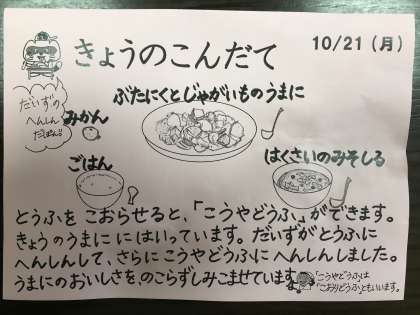 きょうのこんだて
10/21（月）
だいずの
へんしん
だっぽン!
ぶたにくとじゃがいものうまに
みかん
ごはん
はくさいのみそしる
とうふを こおらせると、「こうやどうふ」ができます。
きょうのうまに にはいっています。だいずがとうふに
へんしんして、さらにこうやどうふに へんしんしました。
うまにのおいしさを、のこらずしみこませています。
「こうやどうふ」は
「こおりどうふ」ともいいます。